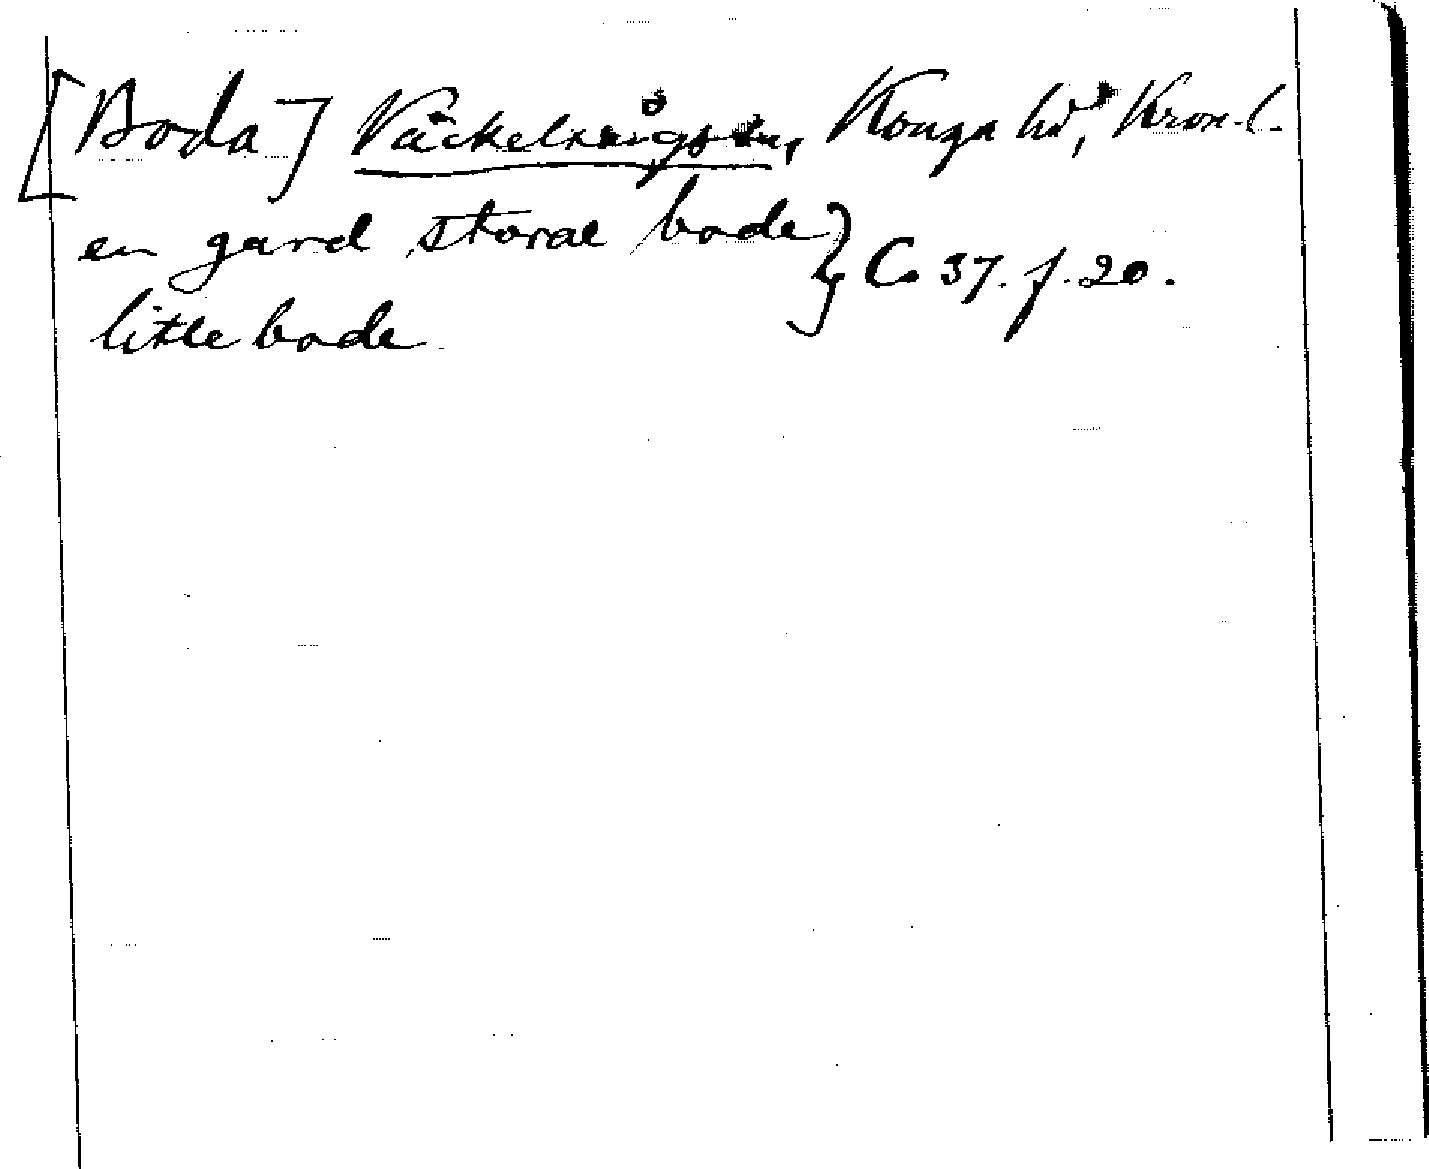 [Boda] Väckelsångs sn, Konga hd, Kron.l.
en gard storae bode } C 37. f. 20.
litle bode